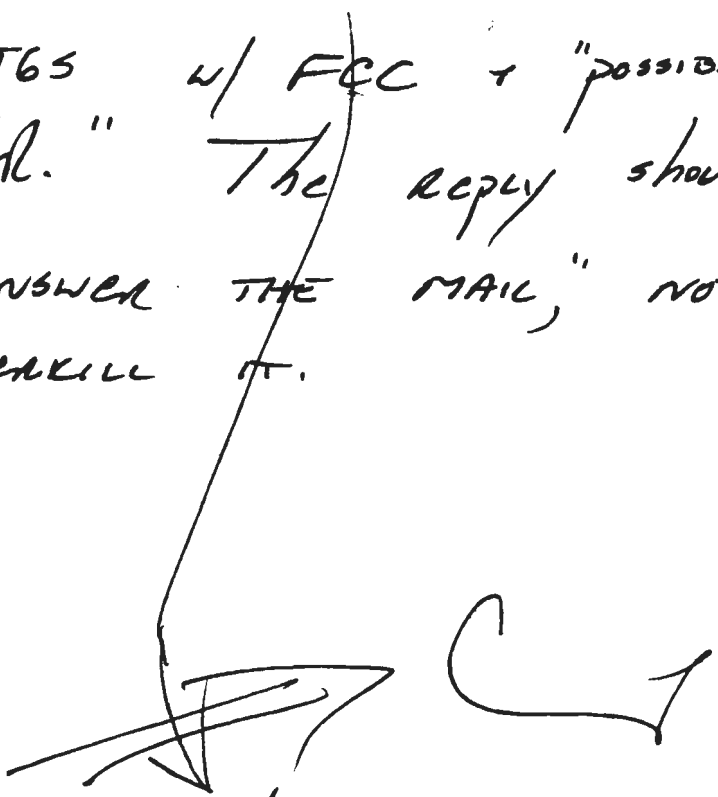 TGS w/ FCC + "possib
R." The Reply shou
NSWER THE MAIL," NO
ERKILL IT.